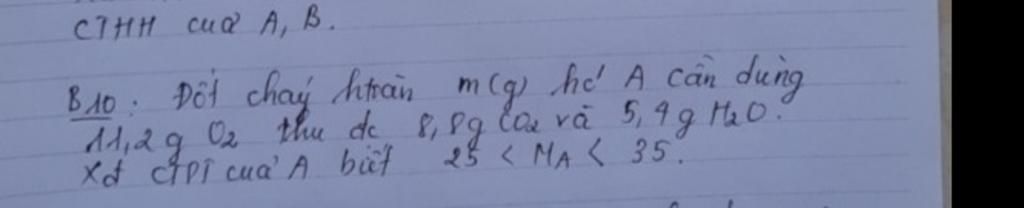 CTHH cuả A, B.
B10: Đốt cháy htoàn m(g) hc' A cần dùng
11,2g O2 thu dc 8,8g CO2 và 5,4g H2O.
Xđ CTPT cuả A biết 25 < MA < 35.